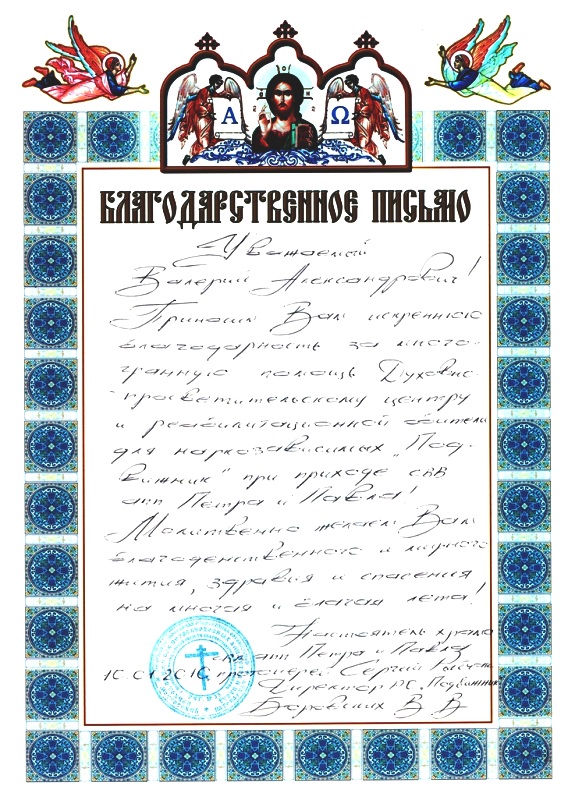 А Ω
БЛАГОДАРСТВЕННОЕ ПИСЬМО
Уважаемый
Валерий Александрович!
Приносим Вам искреннюю
благодарность за много-
гранную помощь Духовно-
просветительскому центру
и реабилитационной обители
для наркозависимых „Под-
вижник" при приходе свв
ап Петра и Павла!
Молитвенно желаем Вам
благоденственного и мирного
жития, здравия и спасения
на многая и благая лета!
Настоятель храма
ап Петра и Павла
10.01.2016, протоиерей Сергий
Директор РС „Подвижник"
В В